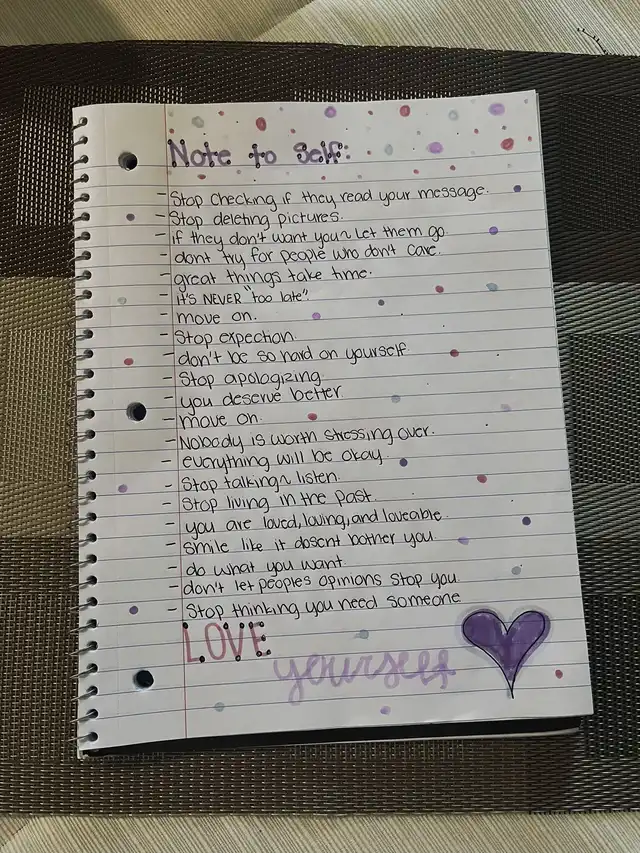 Note to Self:
- Stop checking if they read your message.
- Stop deleting pictures.
- if they don't want you~ Let them go.
- dont try for people who don't care.
- great things take time.
- it's NEVER "too late".
- move on.
- Stop expection.
- don't be so hard on yourself.
- Stop apologizing.
- you deserve better.
- move on.
- Nobody is worth stressing over.
- everything will be okay.
- Stop talking~ listen.
- Stop living in the past.
- you are loved, loving, and loveable.
- smile like it dosent bother you.
- do what you want.
- don't let peoples opinions stop you.
- Stop thinking you need someone.
LOVE
yourself